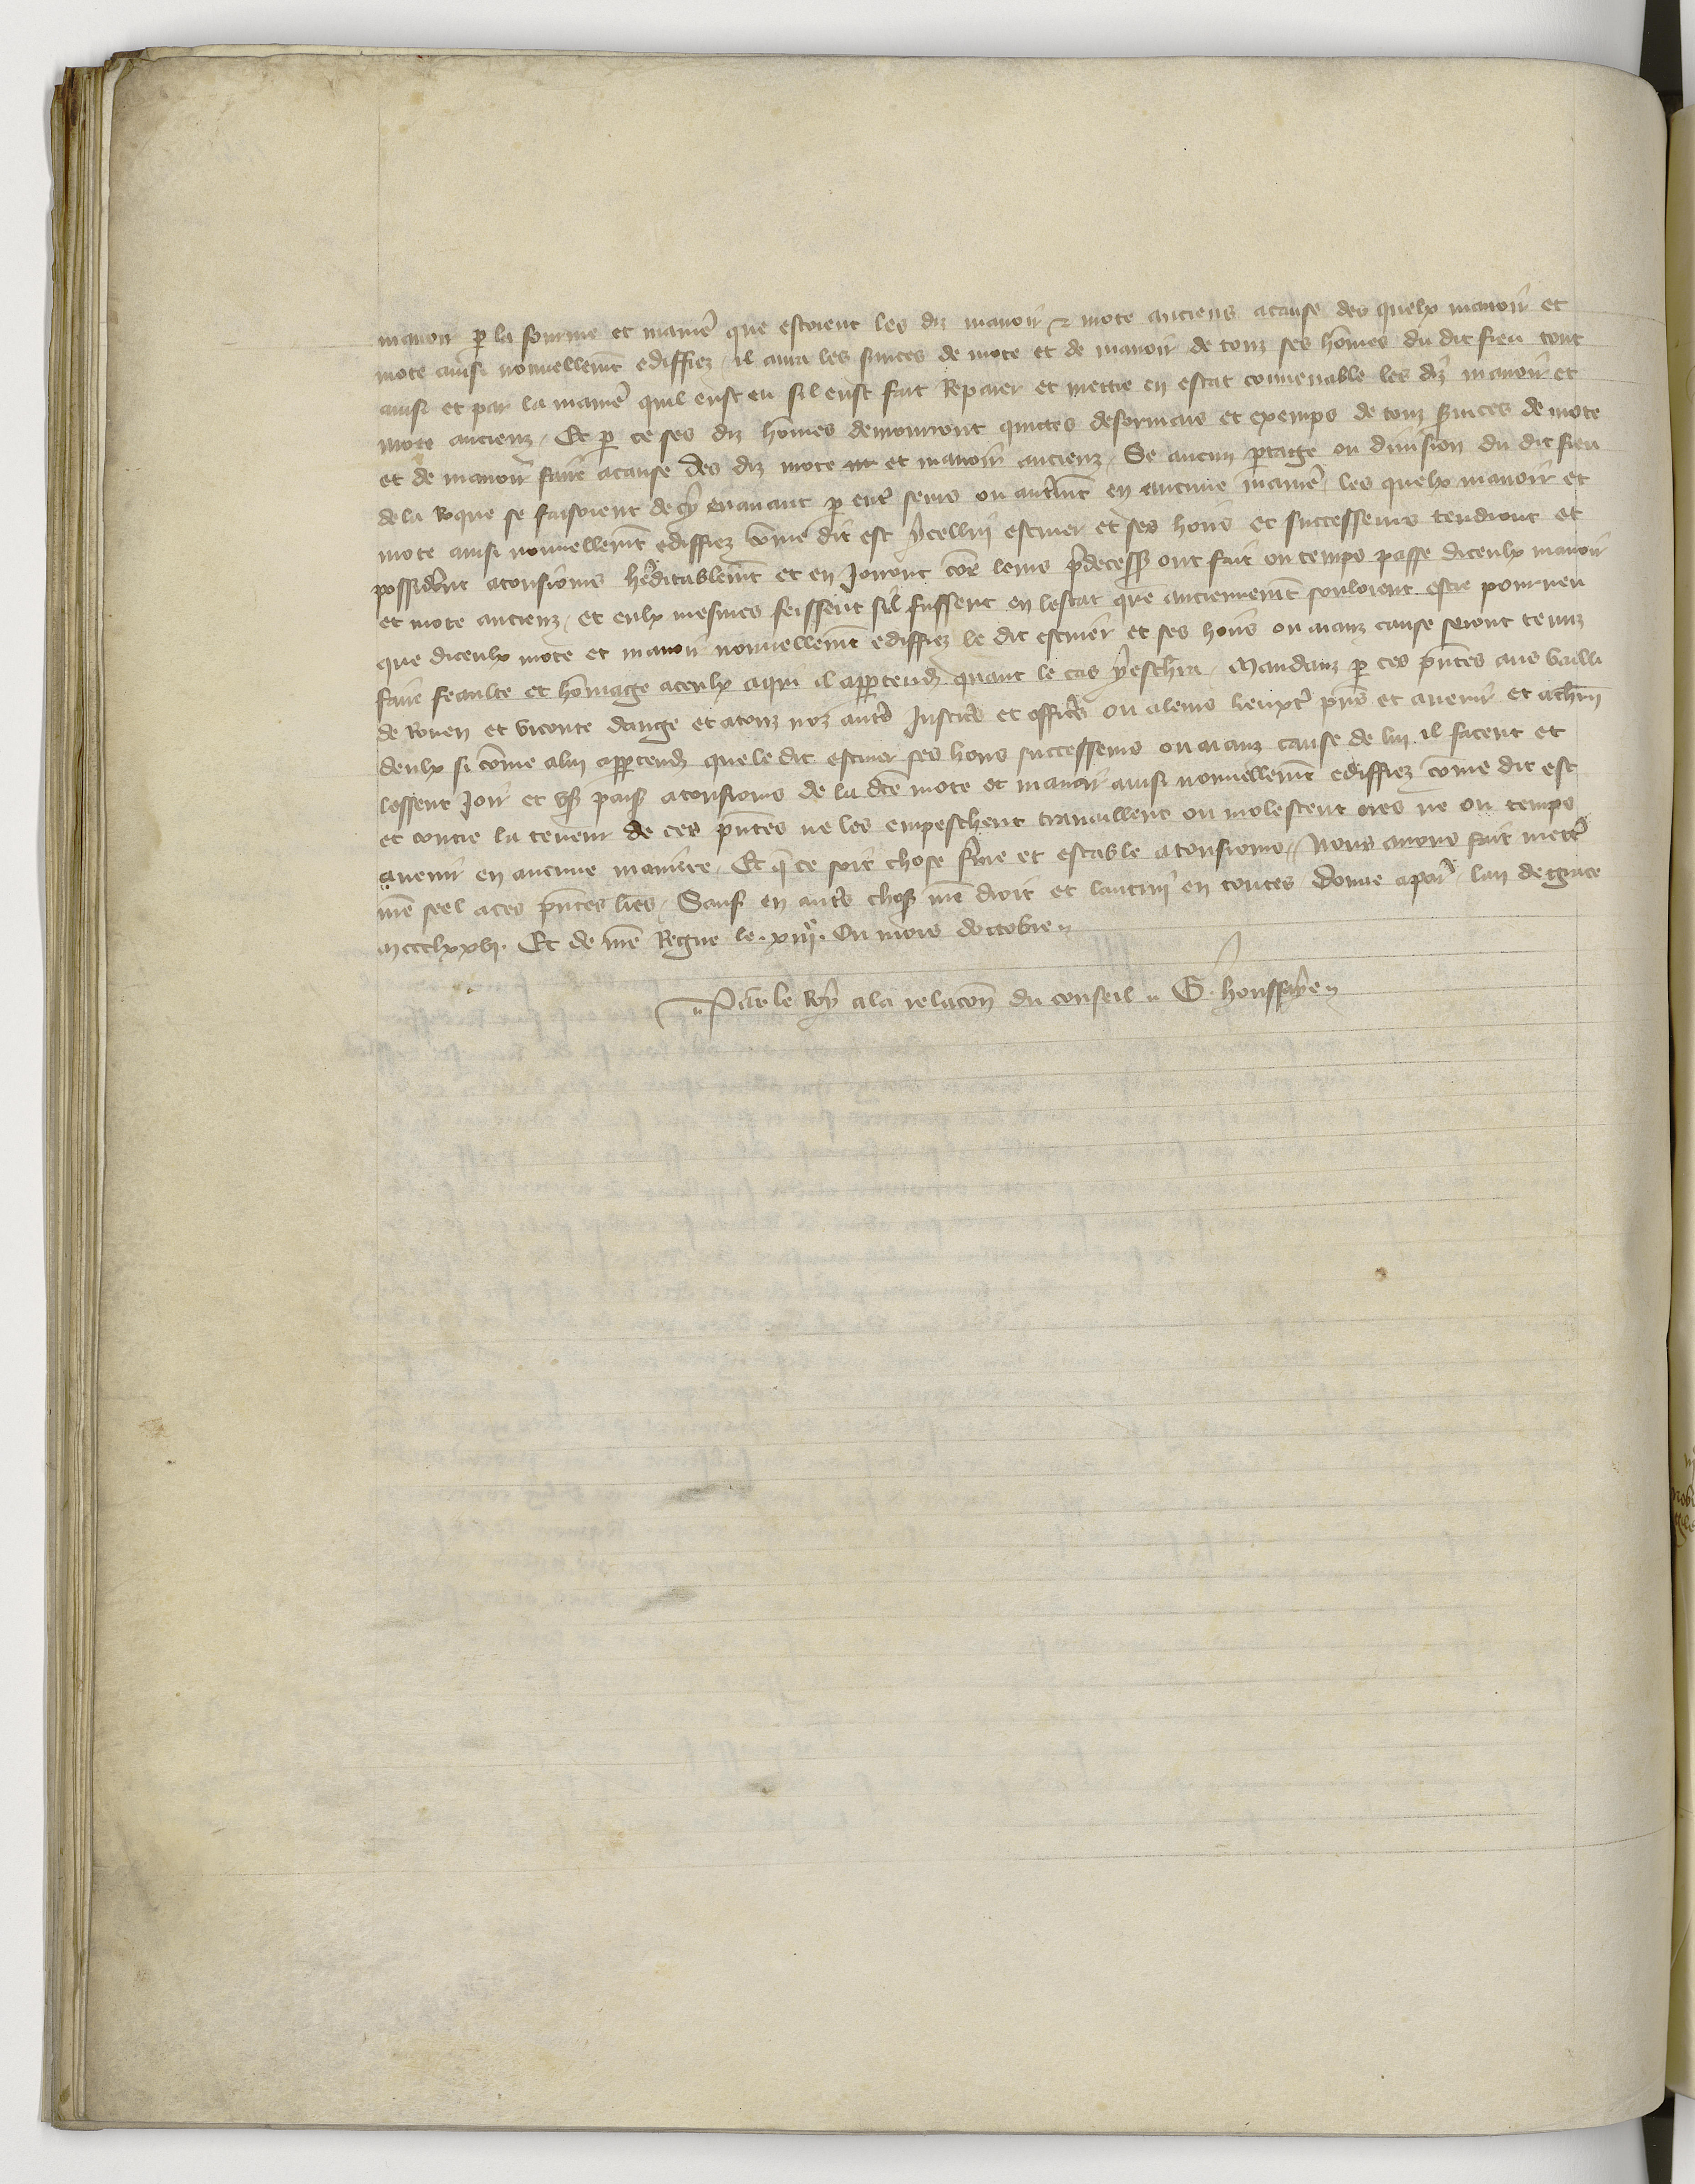 manoir p la fourme et manie que estoient les diz manoir ⁊ mote anciens acause des quelx manoir et
mote ainsi nouuellemt ediffiez il aura les suices de mote et de manoir de touz ses hōmes du dit fieu tout
ainsi et par la manie quil eust eu sil eust fait Reparer et mettre en estat conuenable les diz manoir et
mote ancienz / Et p ce ses diz hōmes demourront quittes desormais et exemps de touz suices de mote
et de manoir faire acause des diz mote et manoir ancienz / Se aucun ptage ou diuision du dit fieu
dela Roque se faisoient decy enauant p ent seurs ou autmt en aucune manie / les quelx manoir et
mote ainsi nouuellemt ediffiez cōme dit est ycellui escuier et ses hoirs et successeurs tendront et
possidrent atousiours heditablemt et en Jouront cōe leurs pdecess ont fait ou temps passe diceulx manoir
et mote ancienz / et eulx mesmes feissent sil fussent en lestat que anciennemt souloient estre pourueu
que diceulx mote et manoir nouuellemt ediffiez le dit escuier et ses hoirs ou aianz cause seront tenuz
faire feaulte et hōmage aceulx aqui il apptendr quant le cas y eschra / Mandanz p ces pntes aus bailli
de Rouen et viconte dauge et atouz noz autrs Justicrs et officrs ou aleurs lieuxt pns et auenir et achūn
deulx si cōme alui apptendr que le dit escuier ses hoirs successeurs ou aianz cause de lui il facent et
lessent Joir et vser paisi atousiours de la dte mote et manoir ainsi nouuellemt ediffiez cōme dit est
et contre la teneur de ces pntes ne les empeschent trauaillent ou molestent ores ne ou temps
auenir en aucune maniere / Et q̄ ce soit chose frme et estable atousiours // Nous auons fait mett
nre seel aces pntes lres / Sauf en autrs choses nre droit et lautrui en toutes Donne apar / lan degrace
mccclxxvi. Et de nre Regne le .xiij. Ou mois doctobre //
// Par le Roy ala relacon du conseil // G. houssaye //